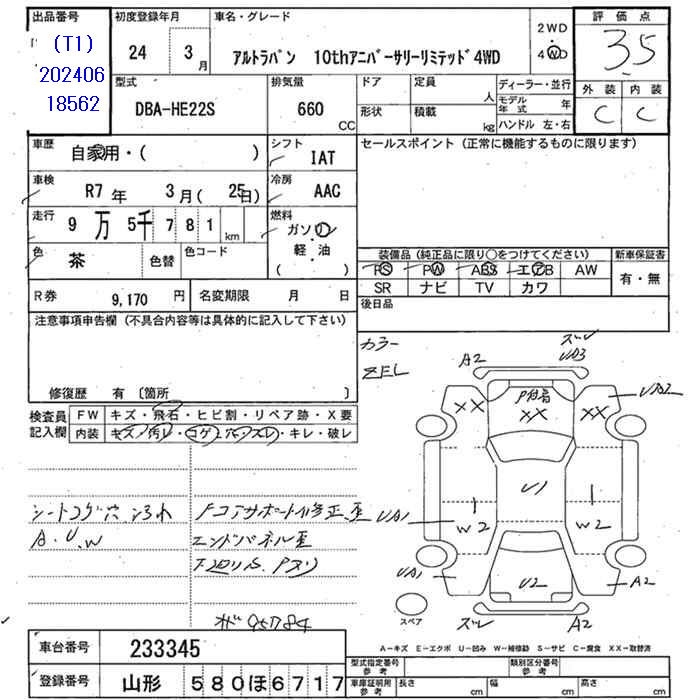 出品番号 初度登録年月 車名・グレード 2WD 評価点
(T1) 24 3月 アルトラパン 10thアニバーサリーリミテッド 4WD 4WD 35
202406
18562
型式 排気量 ドア 定員 人 ディーラー・並行 外装 内装
DBA-HE22S 660 CC 形状 積載 kg モデル年式 年 C C
ハンドル 左・右
車歴 自家用・( ) シフト IAT セールスポイント (正常に機能するものに限ります)
車検 R7年 3月( 25日) 冷房 AAC
走行 9万 5千 7 8 1 km 燃料 ガソリン
色 茶 色替 色コード 軽・油
( )
装備品 (純正品に限り○をつけてください) 新車保証書
PS PW ABS エアB AW 有・無
SR ナビ TV カワ
R券 9,170 円 名変期限 月 日 後日品
注意事項申告欄 (不具合内容等は具体的に記入して下さい)
カラー
ZEL
修復歴 有 〔箇所 〕
検査員記入欄 FW キズ・飛石・ヒビ割・リペア跡・X要
内装 キズ・汚レ・コゲ・穴・スレ・キレ・破レ
シートコゲ穴
A.U.W
エンドパネル歪
A2 ズレ
UD3
XX XX XX UA2
U1
UA1 W2 W2
UA1 U2 A2
ズレ A2
スペア
95784
A-キズ E-エクボ U-凹み W-補修跡 S-サビ C-腐食 XX-取替済
車台番号 233345
登録番号 山形 580ほ6717
型式指定番号 参考 類別区分番号 参考
車庫証明用 参考 長さ cm 幅 cm 高さ cm